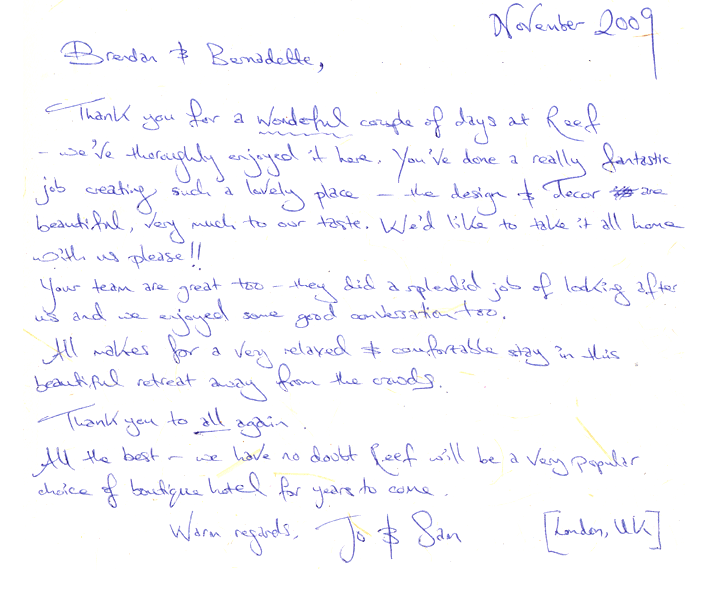 November 2009
Brendan & Bernadette,
Thank you for a wonderful couple of days at Reef
- we've thoroughly enjoyed it here. You've done a really fantastic
job creating such a lovely place - the design & decor are
beautiful, very much to our taste. We'd like to take it all home
with us please!!
Your team are great too - they did a splendid job of looking after
us and we enjoyed some good conversation too.
All makes for a very relaxed & comfortable stay in this
beautiful retreat away from the crowds.
Thank you to all again.
All the best - we have no doubt Reef will be a very popular
choice of boutique hotel for years to come.
Warm regards, Jo & Sam [London, UK]